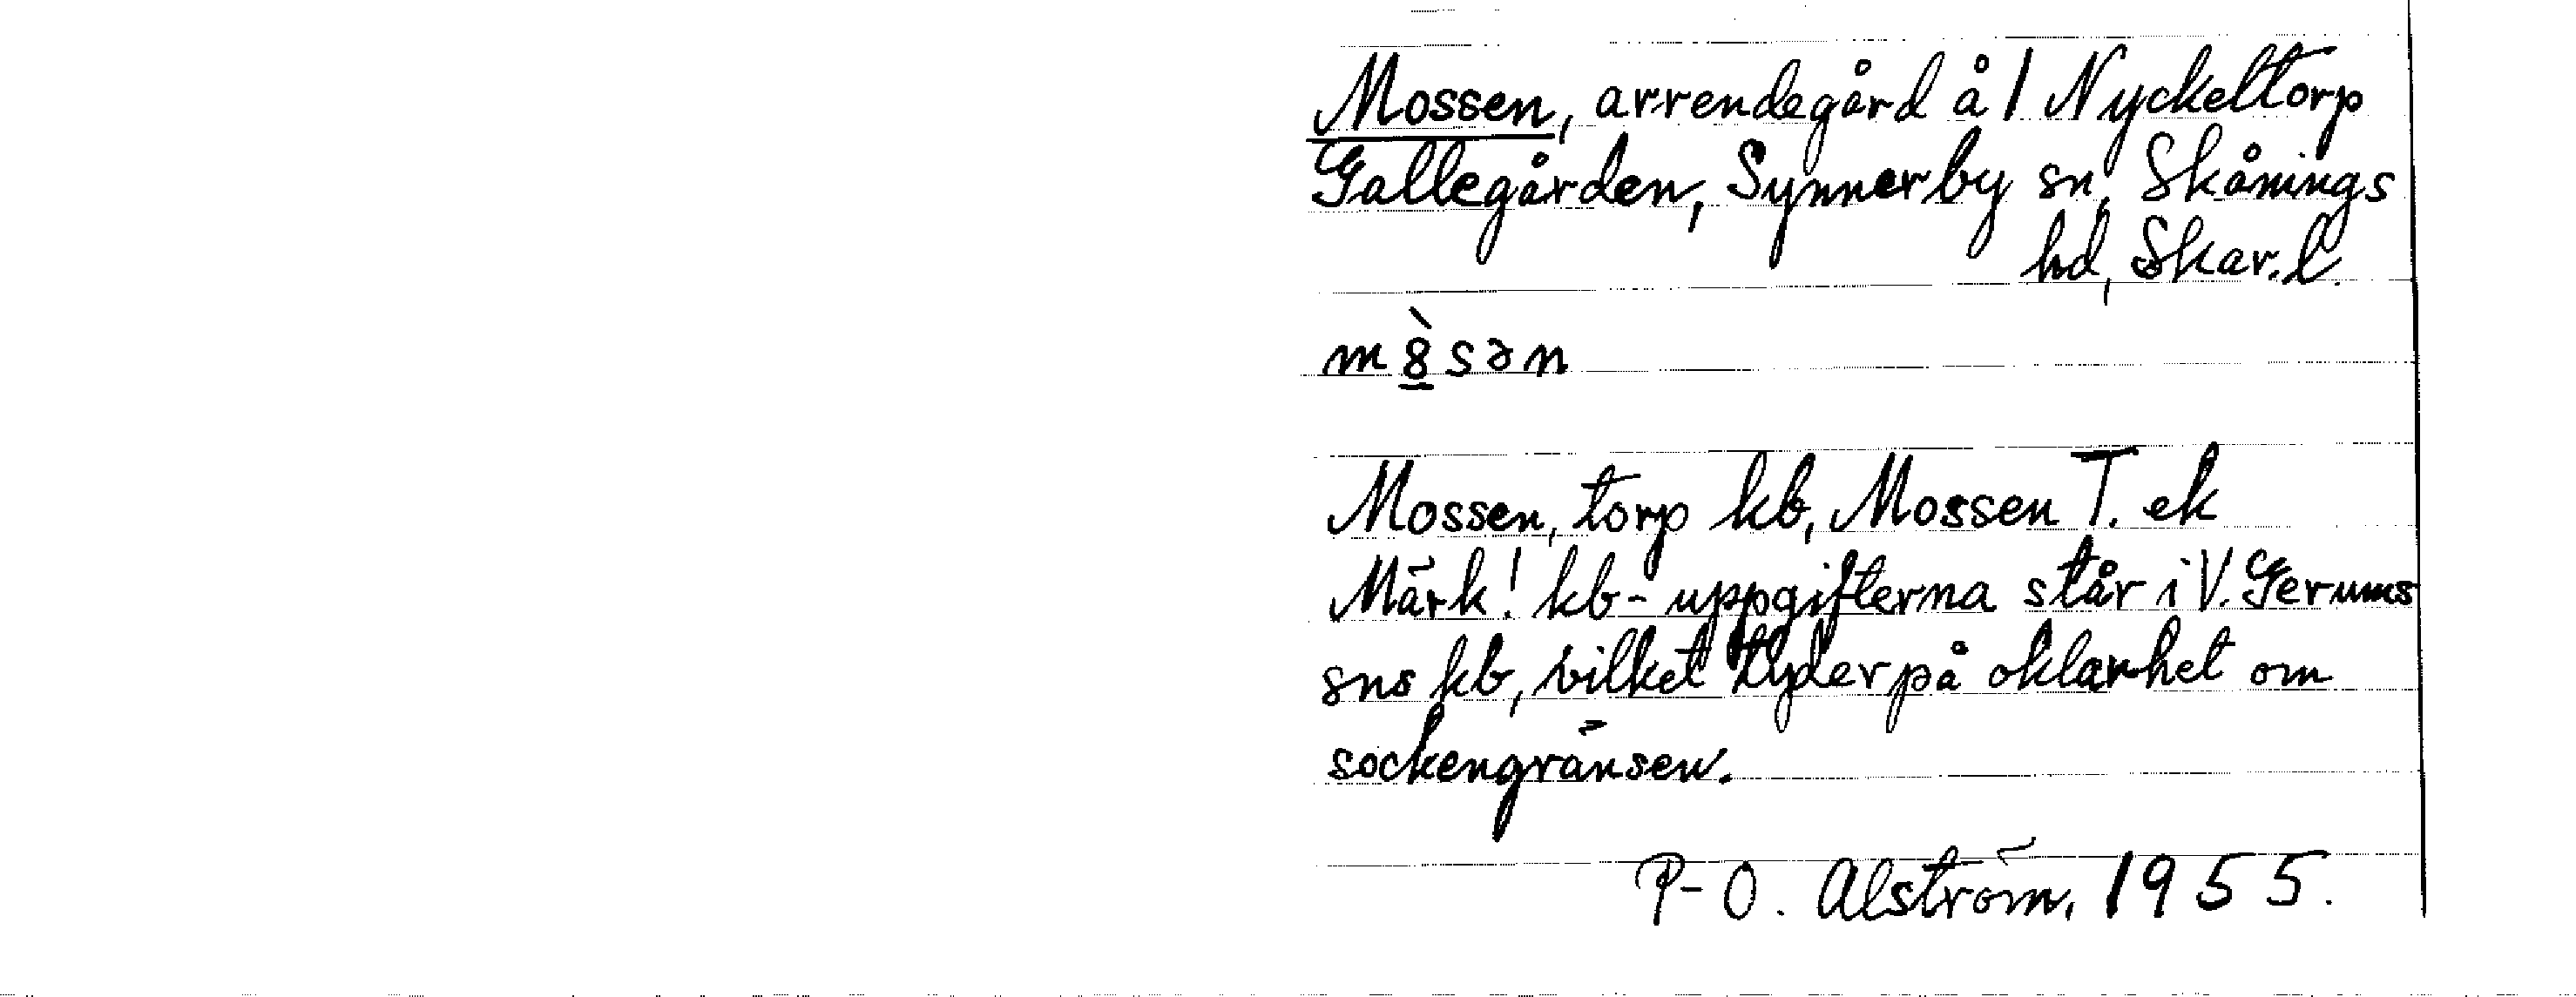 Mossen, arrendegård å 1 Nyckeltorp
Gallegården, Synnerby sn, Skånings
hd, Skar. l.
m8̲̀sən
Mossen, torp kb, Mossen T. ek
Märk! kb-uppgifterna står i V. Gerums
sns kb, vilket tyder på oklarhet om
sockengränsen.
P-O. Alström. 1955.